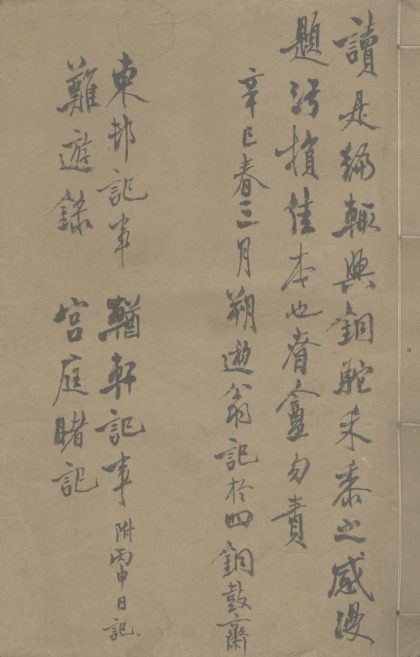 讀是編輒興銅駝禾黍之感漫
題污損佳本也盦勿責
辛巳春三月朔翁記於四銅鼓齋
東邨記事 輶軒記事 附丙申日記
難遊錄 宮庭睹記